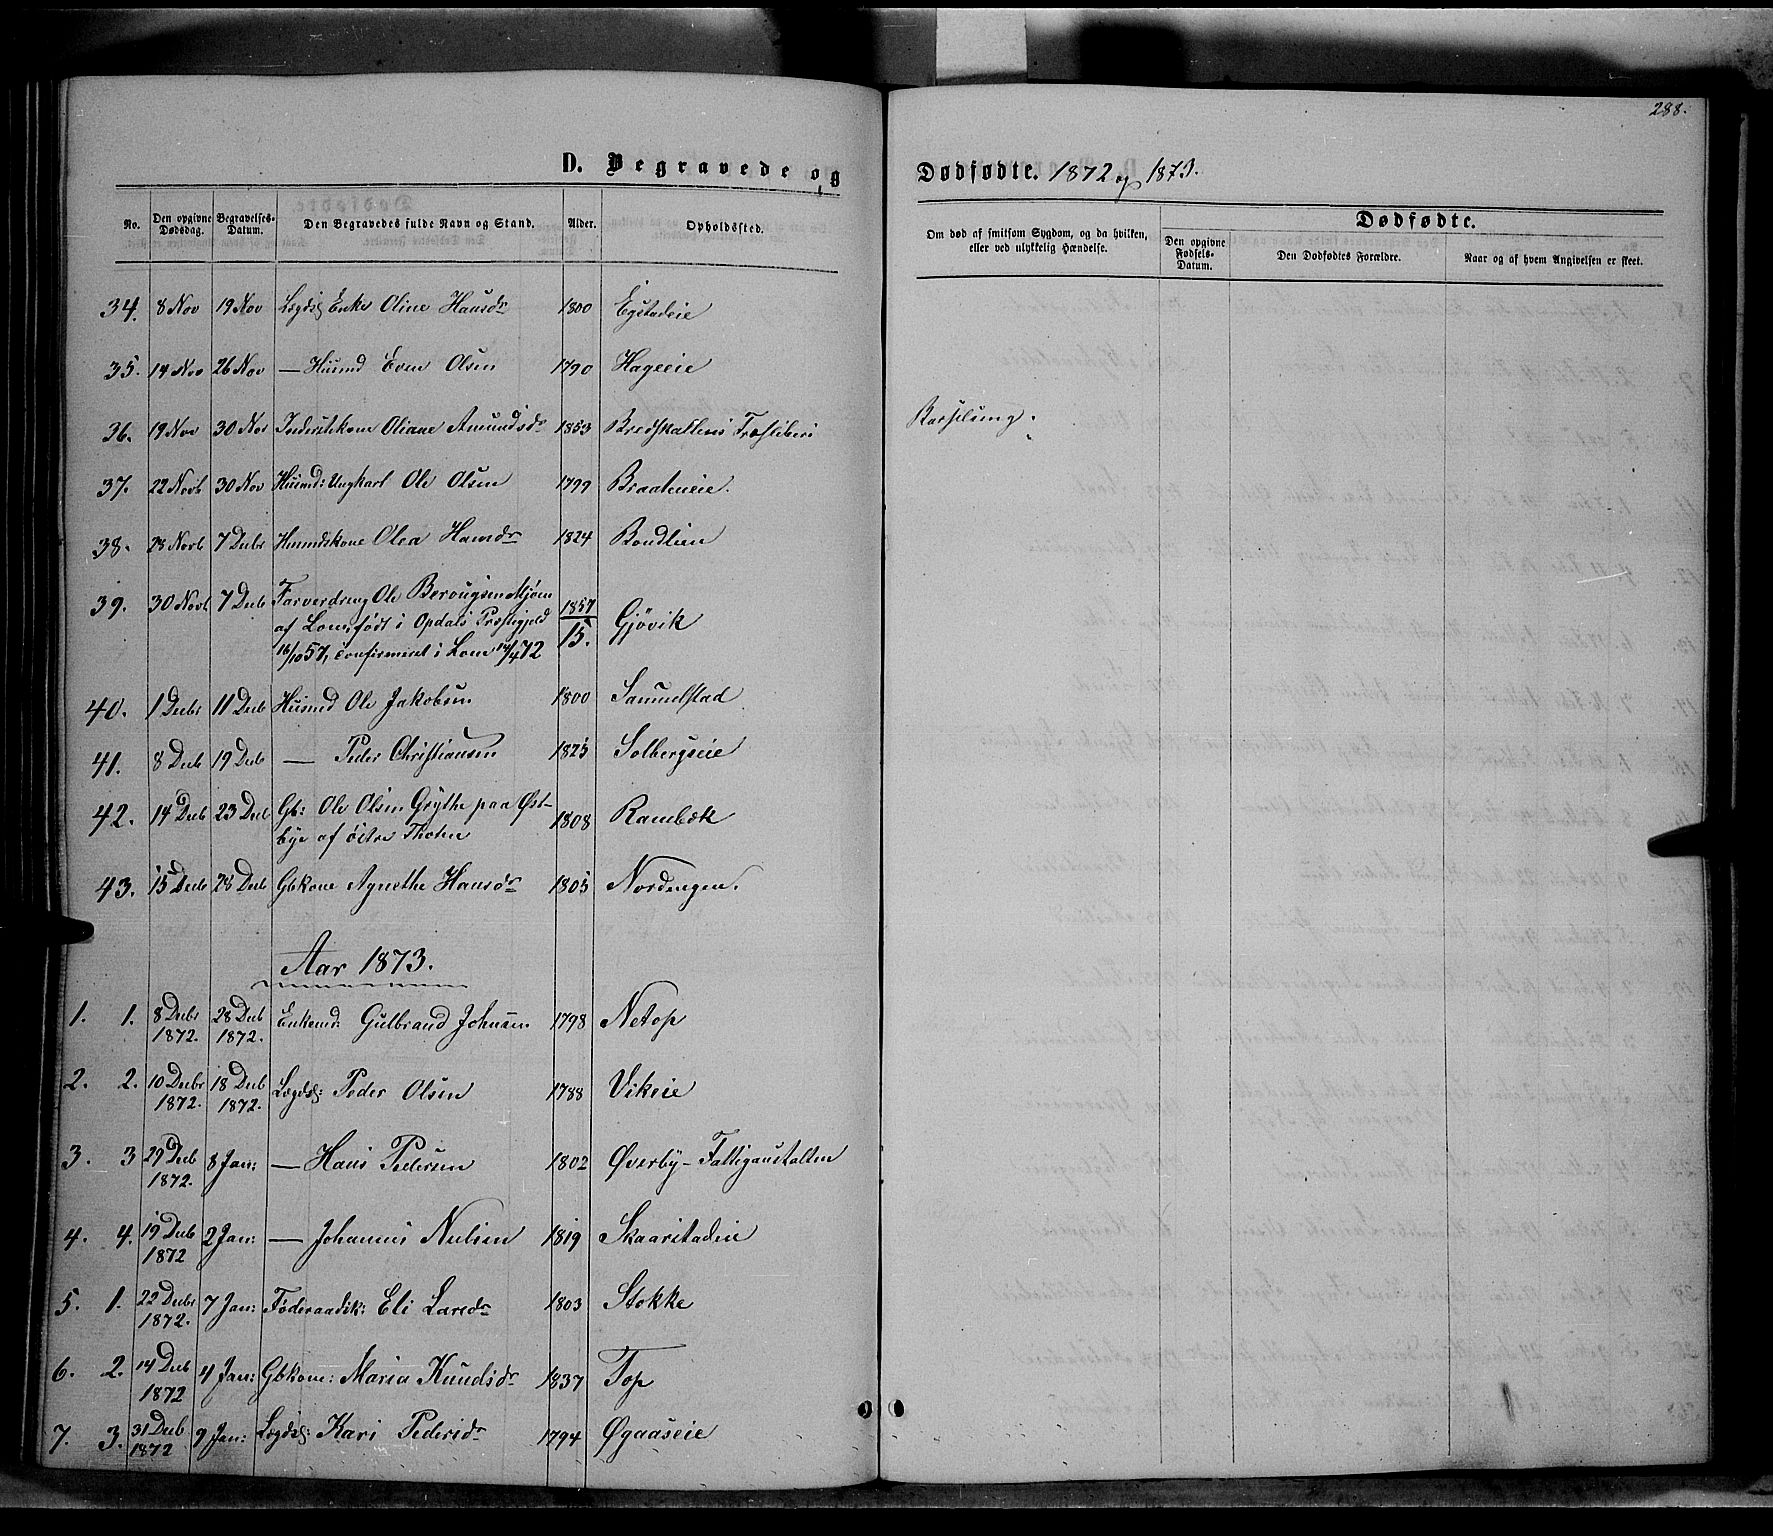 288.
D. Begravede og Dødfødte. 1872 og 1873.
No. Den opgivne Dødsdag. Begravelses-Datum. Den Begravedes fulde Navn og Stand. Alder. Opholdssted. Om død af smitsom Sygdom, og da hvilken, eller ved ulykkelig Hændelse. Dødfødte. Den opgivne Fødsels-Datum. Den Dødfødtes Forældre. Naar og af hvem Angivelsen er skeet.
34. 8 Nov 19 Nov Lægdsl Enke Oline Hansdr 1800 Egstadeie
35. 14 Nov 26 Nov — Husmd Even Olsen 1790 Hageeie
36. 19 Nov 30 Nov Inderstkone Oliane Amundsdr 1853 Bredskallens Træsliberi Barselseng.
37. 22 Novb 30 Nov Husmd: Ungkarl Ole Olsen 1799 Braateneie.
38. 28 Novb 7 Decbr Husmdskone Olea Hansdr 1824 Bondlien
39. 30 Novb 7 Decb Farverdreng Ole Berougsen Mjøen 1857
af Lom, født i Opdals Præstegjeld 15. Gjövik
16/10 57, confirmeret i Lom 14/4 72
40. 1 Decbr 11 Decb Husmd Ole Jakobsen 1800 Samuelstad
41. 8 Decb 19 Decb — Peder Christiansen 1825 Solbergseie
42. 14 Decb 23 Decb Gb: Ole Olsen Grythe paa Øst-
bye af östre Thoten 1808 Rambæk
43. 15 Decb 28 Decb Gbkone Agnethe Hansdr 1805 Nordengen.
Aar 1873.
1. 1. 8 Decbr 1872. 28 Decb 1872. Enkemd: Gulbrand Johnsen 1798 Netop
2. 2. 10 Decbr 1872. 18 Decb 1872. Lægdsl: Peder Olsen 1788 Vikeie
3. 3 29 Decb 1872. 8 Jan: — Hans Pedersen 1802 Øverby-Fattiganstalten
4. 4. 19 Decb 1872 2 Jan: — Johannes Nielsen 1819 Skaarstadeie
5. 1. 22 Decbr 1872. 7 Jan: Föderaadsk: Eli Larsdr 1803 Stokke
6. 2. 14 Decb 1872 4 Jan: Gbkone: Maria Knudsdr 1837 Top
7. 3. 31 Decb 1872 9 Jan: Lægdsl: Kari Pedersdr 1794 Øgaaseie